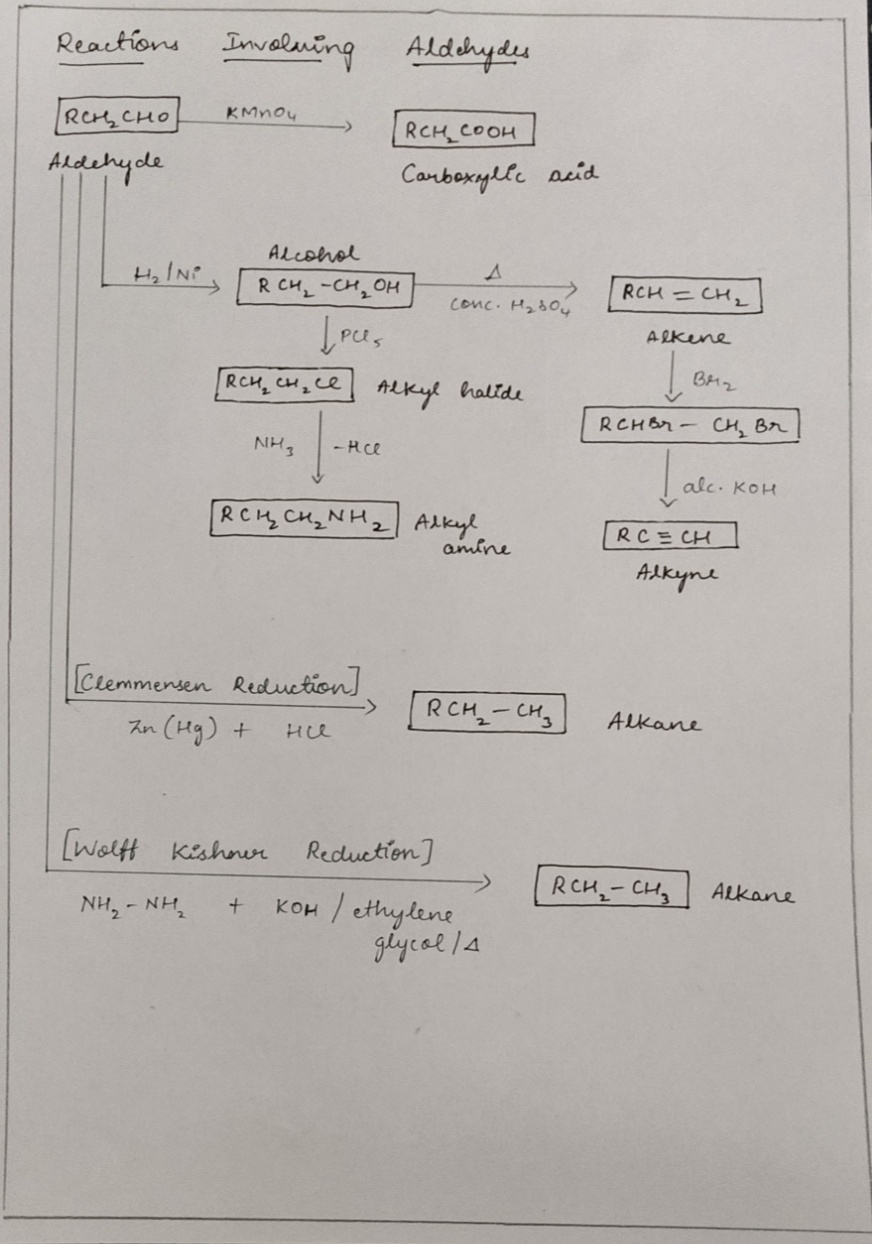 Reactions Involving Aldehydes
RCH₂CHO KMnO₄ RCH₂COOH
Aldehyde Carboxylic acid
Alcohol
H₂/Ni RCH₂-CH₂OH Δ conc. H₂SO₄ RCH=CH₂
Alkene
PCl₅ Br₂
RCH₂CH₂Cl Alkyl halide
RCHBr-CH₂Br
NH₃ -HCl alc. KOH
RCH₂CH₂NH₂ Alkyl amine
RC≡CH
Alkyne
[Clemmensen Reduction]
Zn(Hg) + HCl RCH₂-CH₃ Alkane
[Wolff Kishner Reduction]
RCH₂-CH₃ Alkane
NH₂-NH₂ + KOH / ethylene
glycol/Δ